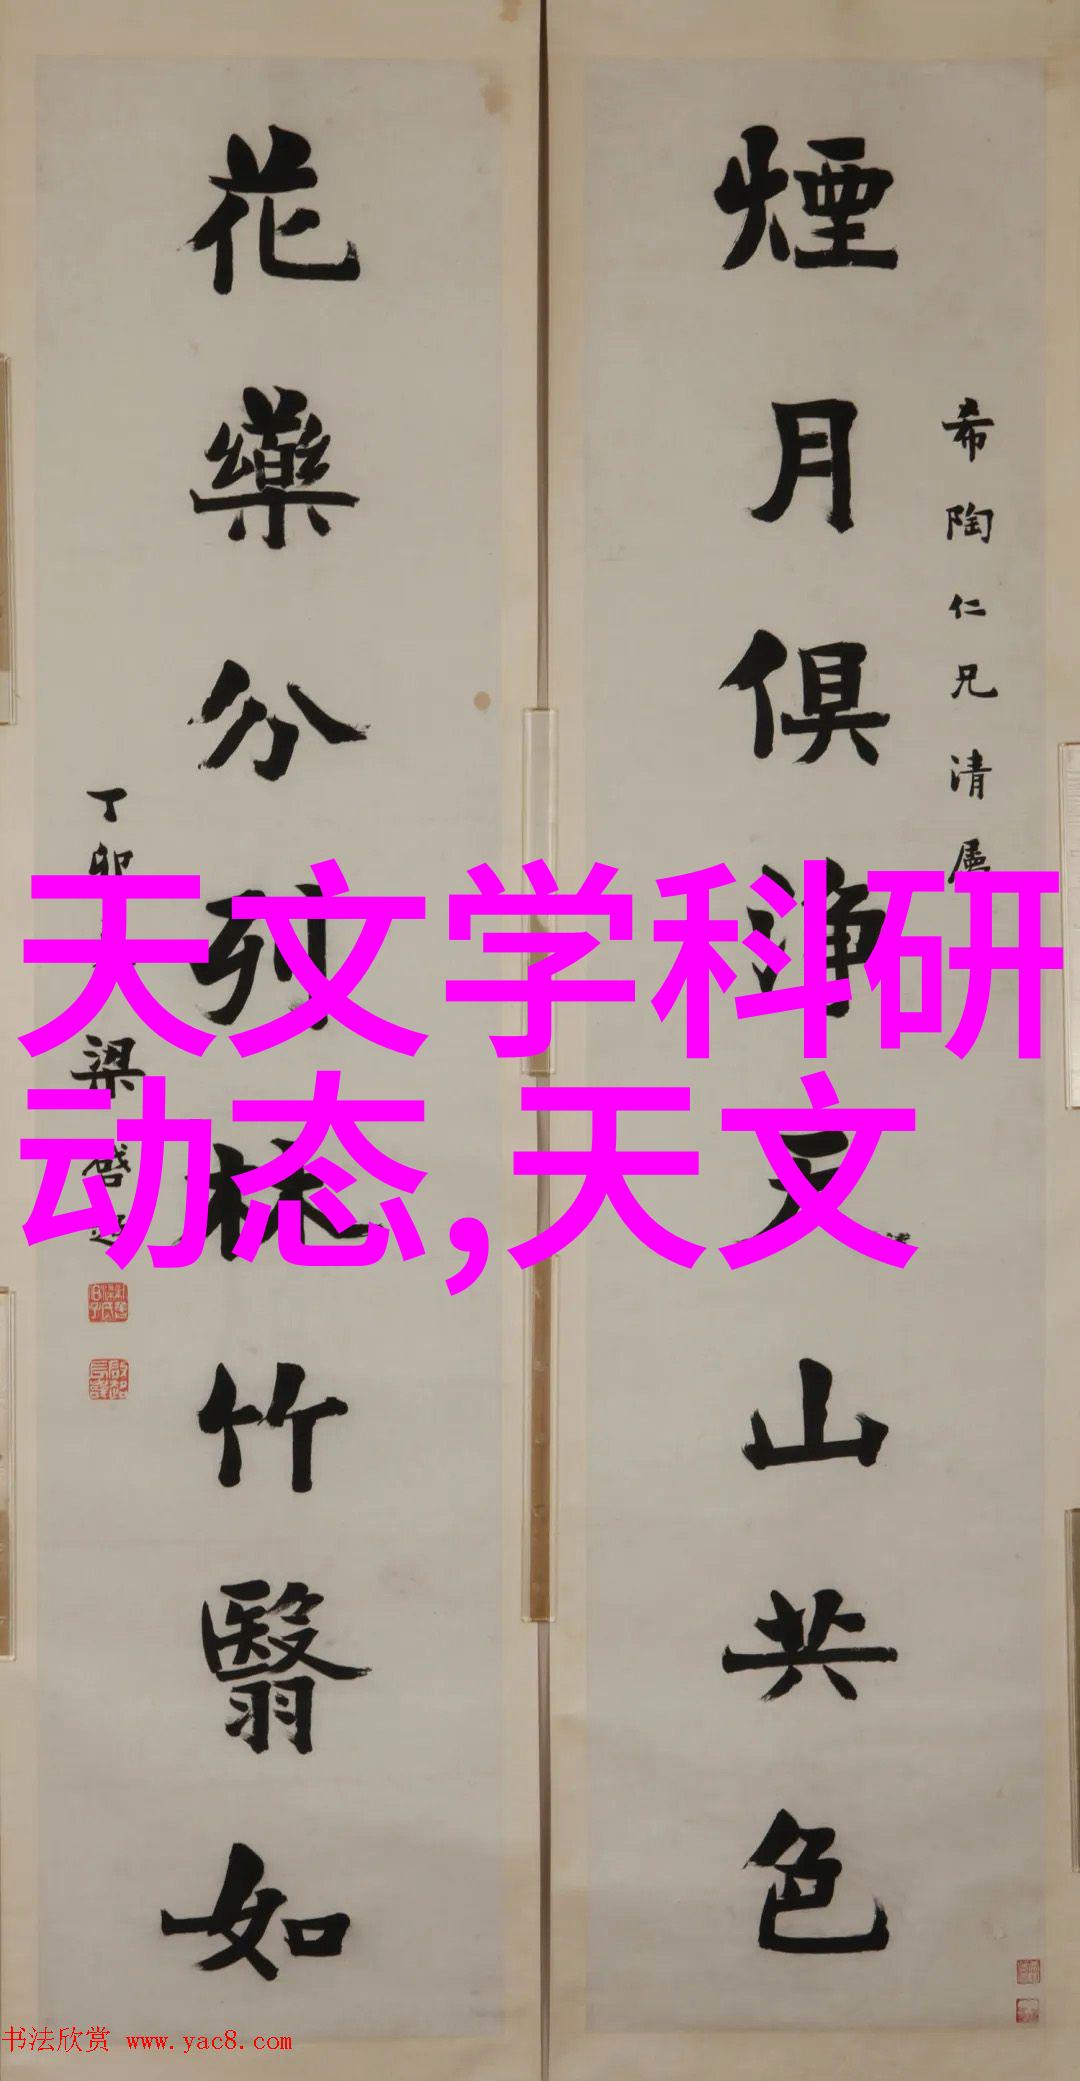 希陶仁兄清属
煙月俱淨天山共色
花藥分列林竹翳如
丁卯
梁啓超
天文学科研
动态,天文
书法欣赏 www.yac8.com